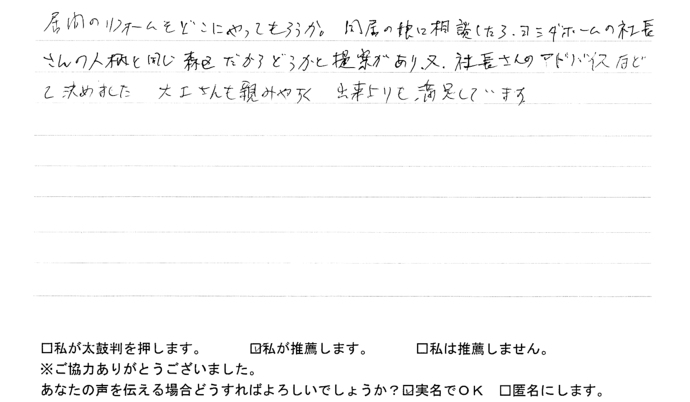 居間のリフォームをどこにやってもらうか。同居の娘に相談したら、ヨシダホームの社長
さんの人柄と同じ森区だからどうかと提案があり、又、社長さんのアドバイスなど
で決めました 大工さんも親みやすく 出来上りも、満足しています
□私が太鼓判を押します。 ☑私が推薦します。 □私は推薦しません。
※ご協力ありがとうございました。
あなたの声を伝える場合どうすればよろしいでしょうか？☑実名でＯＫ □匿名にします。